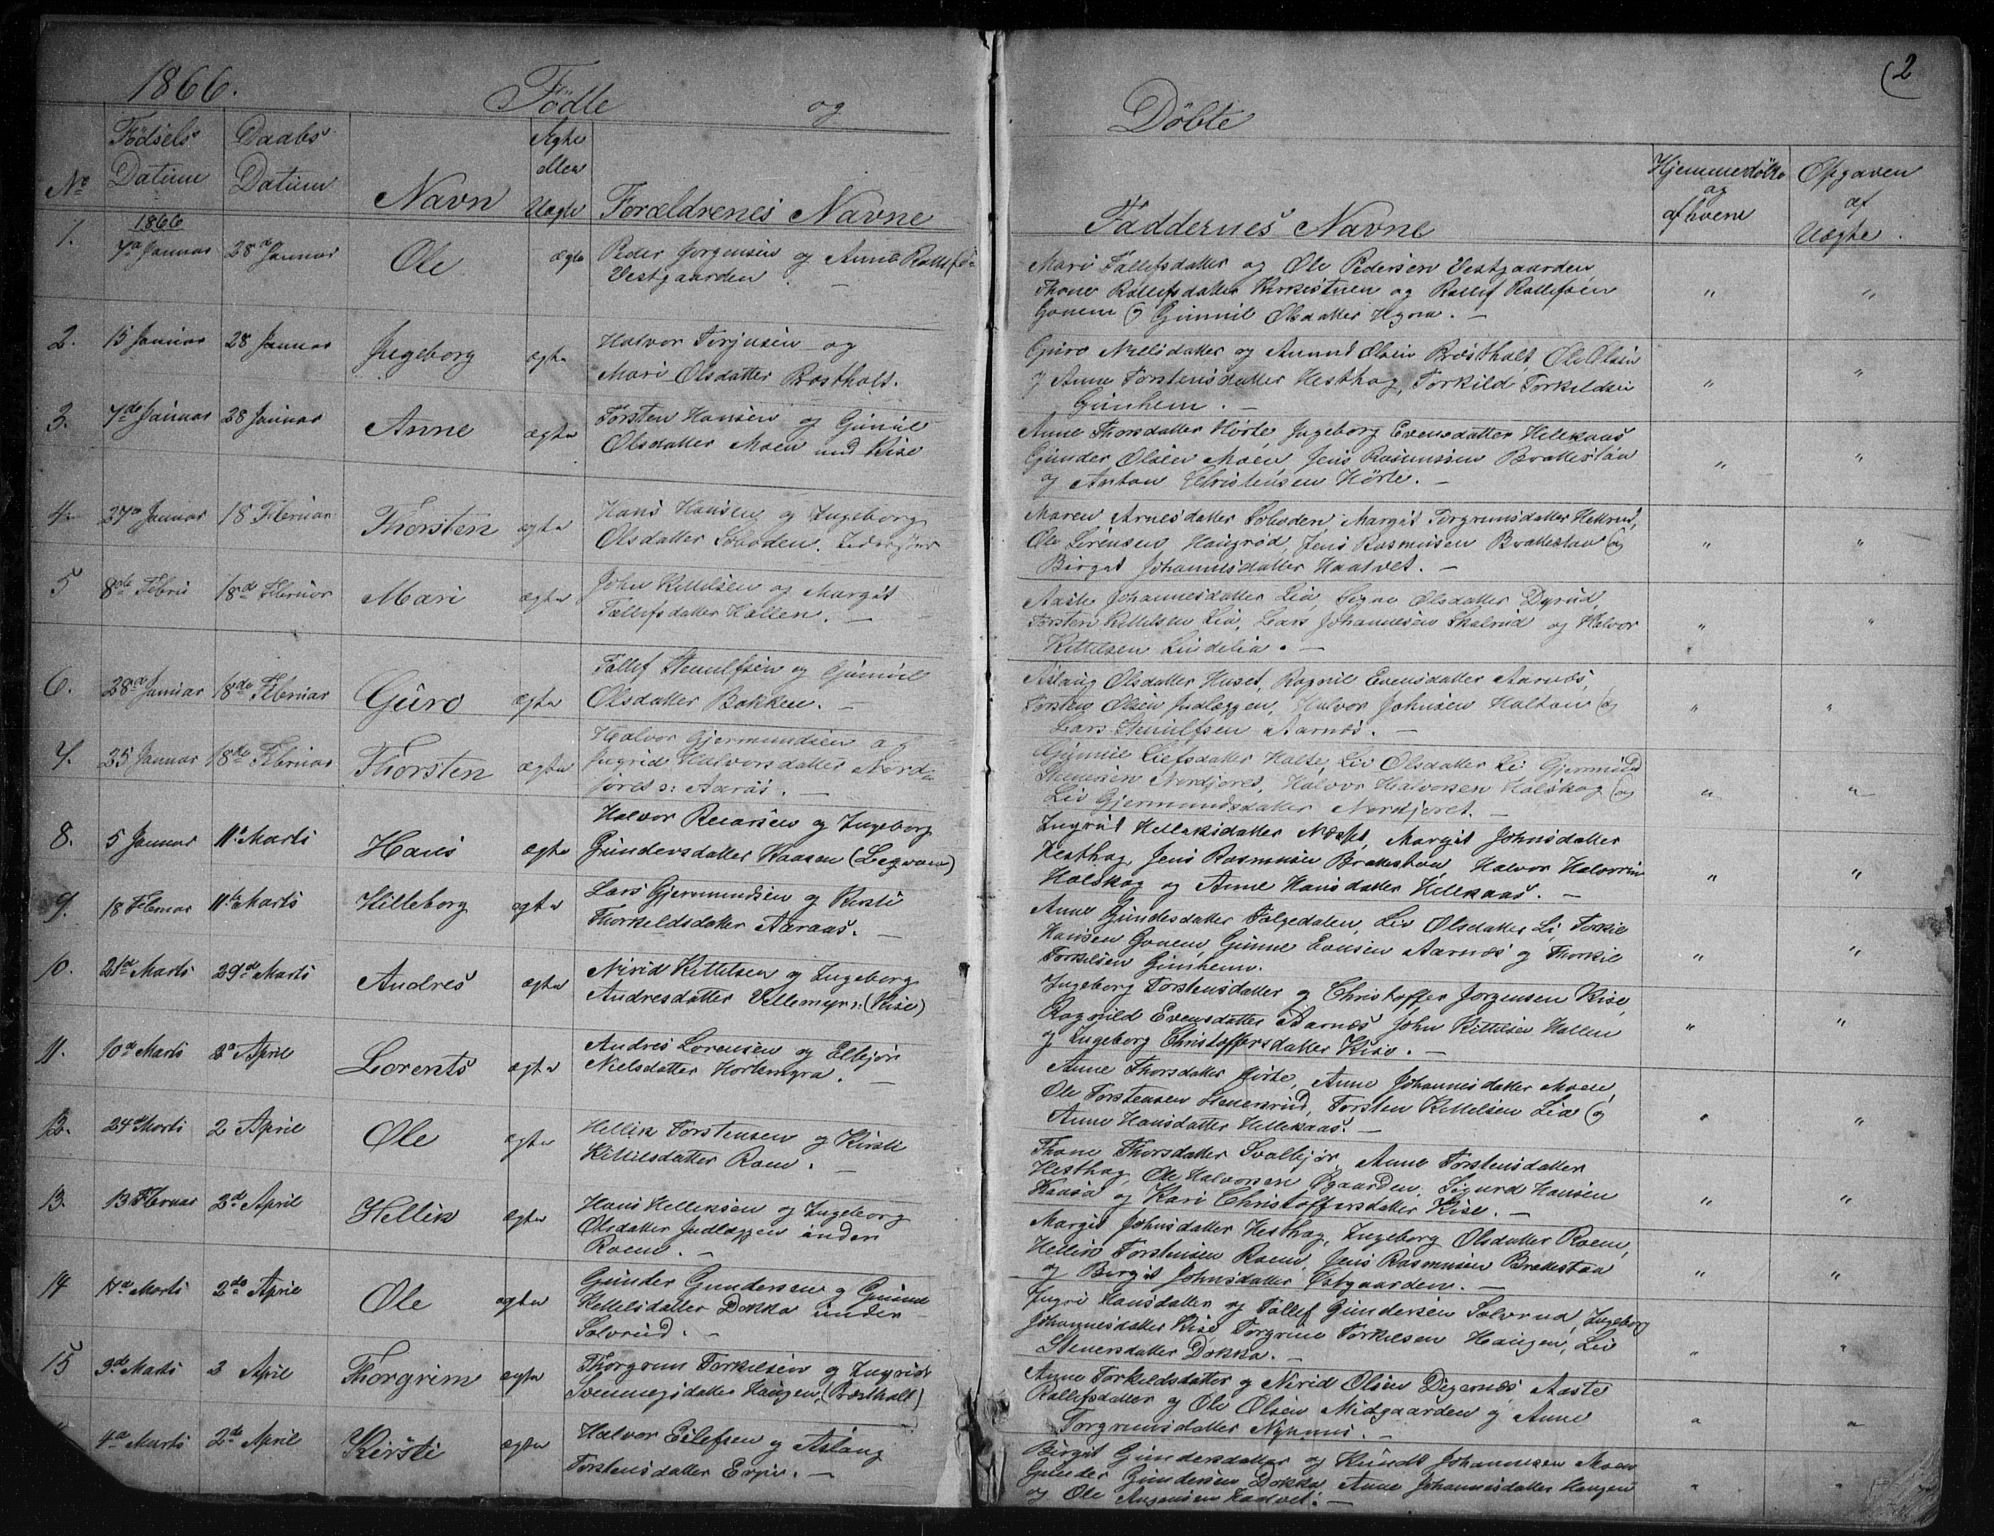 1866.
Fødte og
Døbte
2
No
Fødsels Datum
Daabs Datum
Navn
Ægte eller Uægte
Forældrenes Navne
Faddernes Navne
Hjemmedøbte og af hvem
Opgaven af Uægte.
1. 1866
7de Januar 28de Januar Ole ægte Peder Jørgensen og Anne
Vestgaarden
Mari Tallefsdatter og Ole Pedersen Vestgaarden,
Thone Rollefsdatter Kirkestuen og Rollef Rollefsen
Gonem og Gunnil Olsdatter
2. 15 Januar 28 Januar Ingeborg ægte Halvor Torjusen og
Mari Olsdatter Bøstholt.
Guro Nilsdatter og Amund Olsen Bøstholt, Ole Olsen
og Anne Torstensdatter Hesthag, Torkild Torkildsen
Gunhem.
3. 7de Januar 28 Januar Anne ægte Torsten Hansen og Gunil
Olsdatter Moen und Kise
Anne Thorsdatter Hørte, Ingeborg Evensdatter Hellekaas
Gunder Olsen Moen, Jens Rasmussen Brakkestøa
og Anton Christensen Hørte.
4. 27de Januar 18 Februar Thorsten ægte Hans Hansen og Ingeborg
Olsdatter
Maren Arnesdatter Margit Torgrimsdatter
Ole Sørensen Haugrød, Jens Rasmusen Brakkestøa og
Birgit Johannesdatter Haatvet.
5 8de Febru 18de Februar Mari ægte John Kittilsen og Margit
Tallefsdatter Hallen.
Aaste Johannesdatter Lia, Signe Olsdatter Dyrud,
Torsten Kittilsen Lia, Lars Johannesen Skalrud og Halvor
Kittilsen Lindelia.
6. 28de Januar 18de Februar Guro ægte Tallef Stenulfsen og Gunnil
Olsdatter Bakken.
Aslaug Olsdatter Huset, Ragnil Evensdatter Aarnæs,
Torsten Olsen Indlæggen, Halvor Johnsen Haltan og
Lars Stenulfsen Aarnæs.
7. 25 Januar 18de Februar Thorsten ægte Halvor Gjermundsen og
Ingrid Halvorsdatter Nord-
jøret
Gunnil Liefsdatter Liv Olsdatter Li Gjermund
Stenersen Nordjøret, Halvor Halvorsen Holskog og
Liv Gjermundsdatter Nordjøret.
8. 5 Januar 11te Marts Hans ægte Halvor og Ingeborg
Gundersdatter Haasen
Ingrid Helleksdatter Margit Johnsdatter
Hesthag, Jens Rasmusen Brakestøa, Halvor Halvorsen
Holskog og Anne Hansdatter Hellekaas.
9. 18 Februar 11te Marts Hilleborg ægte Lars Gjermundsen og Kirsti
Thorkildsdatter Aaraas.
Anne Gundesdatter Folgedalen, Liv Olsdatter Li, Torkil
Hansen Gonem, Gunne Evensen Aarnæs og Thorkil
Torkilsen Gunhem.
10. 21de Marts 29de Marts Andres ægte Nirid Kittilsen og Ingeborg
Andresdatter (Kise)
Ingeborg Torstensdatter og Christoffer Jørgensen Kise,
Ragnild Evensdatter Aarnæs, John Kittilsen Hallen
og Ingeborg Christoffersdatter Kise.
11. 10de Marts 2de April Lorents ægte Andres Lorensen og
Nielsdatter Hørtemyra.
Anne Thorsdatter Hørte, Anne Johannesdatter Moen,
Ole Torstensen Stenersrud, Torsten Kittilsen Lia og
Anne Hansdatter Hellekaas.
12. 24de Marts 2 April Ole ægte Hellik Torstensen og Kirsti
Kittilsdatter Roem.
Thone Thorsdatter Anne Torstensdatter
Hesthag, Ole Halvorsen Øgaarden, Sigurd Hansen
Kaasa og Kari Christoffersdatter Kise.
13. 13 Februar 2de April Hellik ægte Hans Helleksen og Ingeborg
Olsdatter Indlæggen under
Roem.
Margit Johnsdatter Hesthag, Ingeborg Olsdatter Roem,
Hellik Torstensen Roem, Jens Rasmusen Brakestaa
og Birgit Johnsdatter
14 7de Marts 2de April Ole ægte Gunder Gundersen og
Kettelsdatter Dokka under
Solvrud.
Ingri Hansdatter og Tallef Gundersen Solvrud, Ingeborg
Johannesdatter Kise, Torgrim Torkilsen Haugen, Liv
Stenersdatter Dokka.
15 9de Marts 2 April Thorgrim ægte Thorgrim Torkilsen og Ingrid
Haugen, (Bøstholt)
Anne Torkeldsdatter og Nirid Olsen Digernæs, Aaste
Rollefsdatter og Ole Olsen Midgaarden og Anne
Torgrimsdatter
4de Marts 2de April Kirsti ægte Halvor Eilefsen og Aslaug
Torstensdatter
Birgit Gundersdatter og Knudt Johannesen Moen
Gunder Gundersen Dokka, Anne Johannesdatter Haugen
og Ole